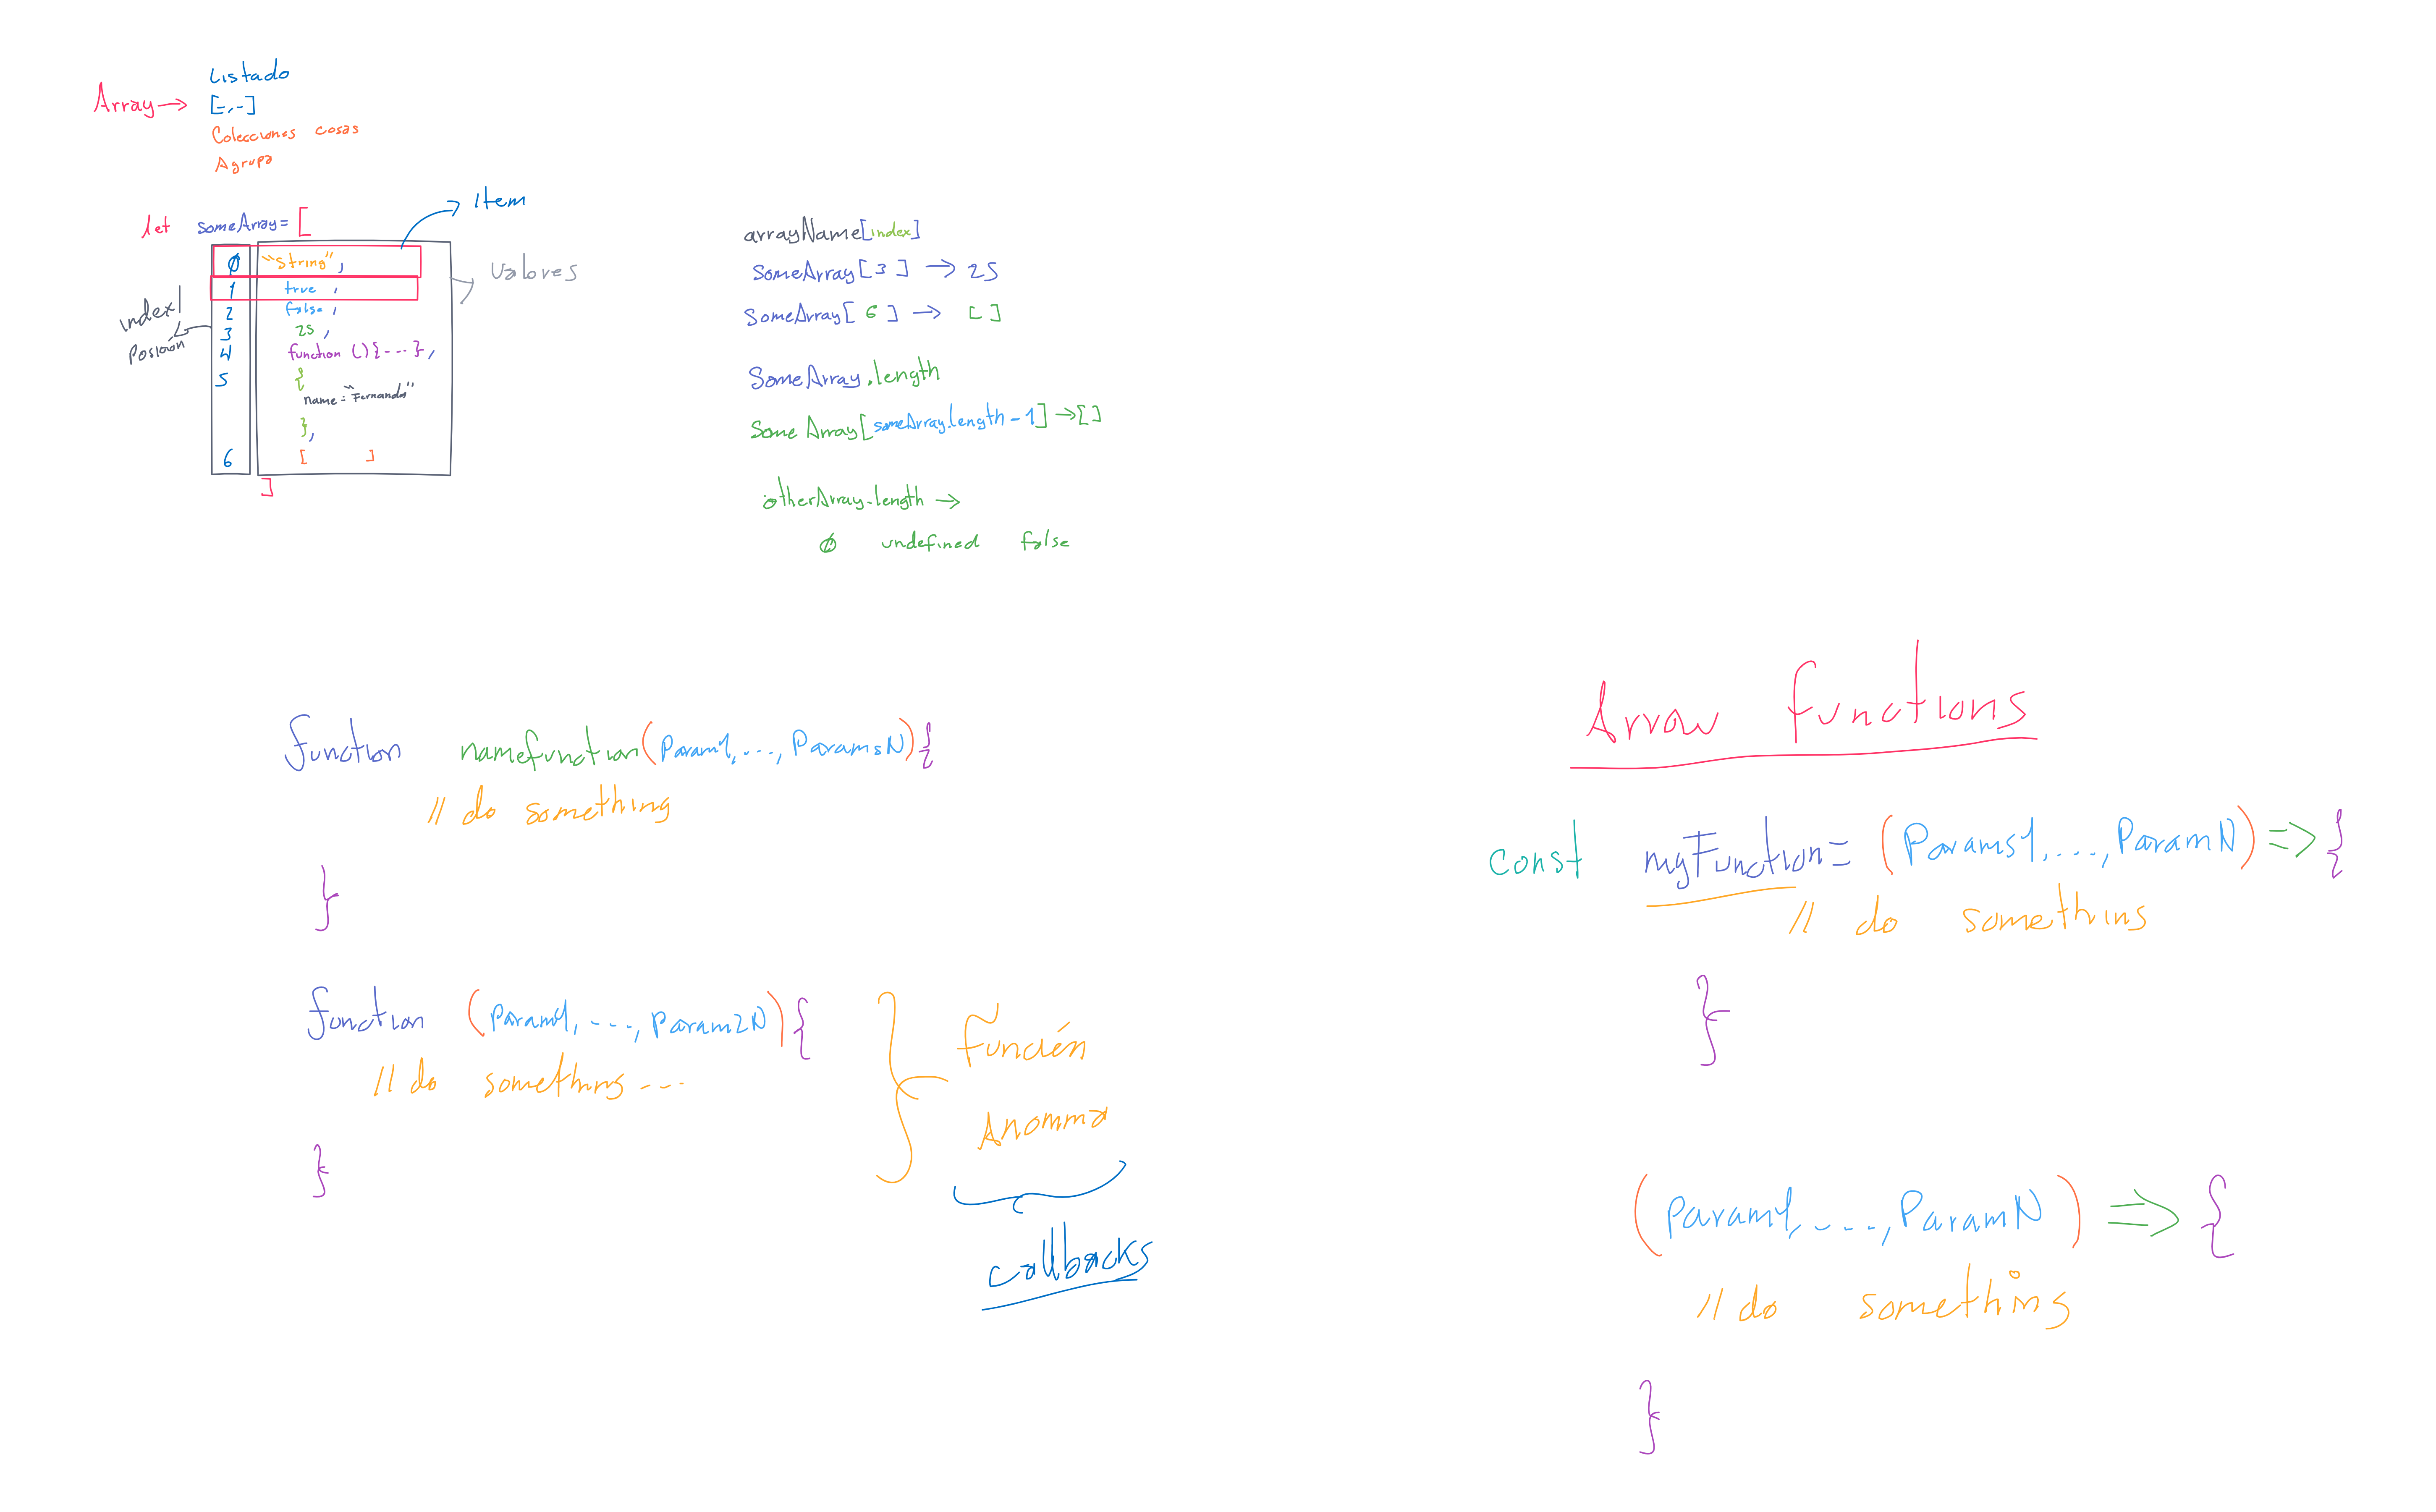 Listado
Array →
[-,-]
Colecciones cosas
Agrupa
Item
let someArray = [
0 "String",
1 true ,
2 false ,
3 25 ,
4 function () { --- } ,
5 {
name: "Fernando"
},
6 [ ]
]
Valores
index /
Posición
arrayName[index]
SomeArray[3] → 25
SomeArray[6] → []
SomeArray.length
SomeArray[someArray.length-1] → []
otherArray.length →
0 undefined false
function namefunction(Param1, ..., ParamsN) {
// do something
}
function (Param1, ---, Param2N) {
// do something ---
}
Función
Anonima
callbacks
Arrow functions
const myFunction = (Params1, ..., ParamN) => {
// do something
}
(Param1, ---, ParamN) => {
// do something
}